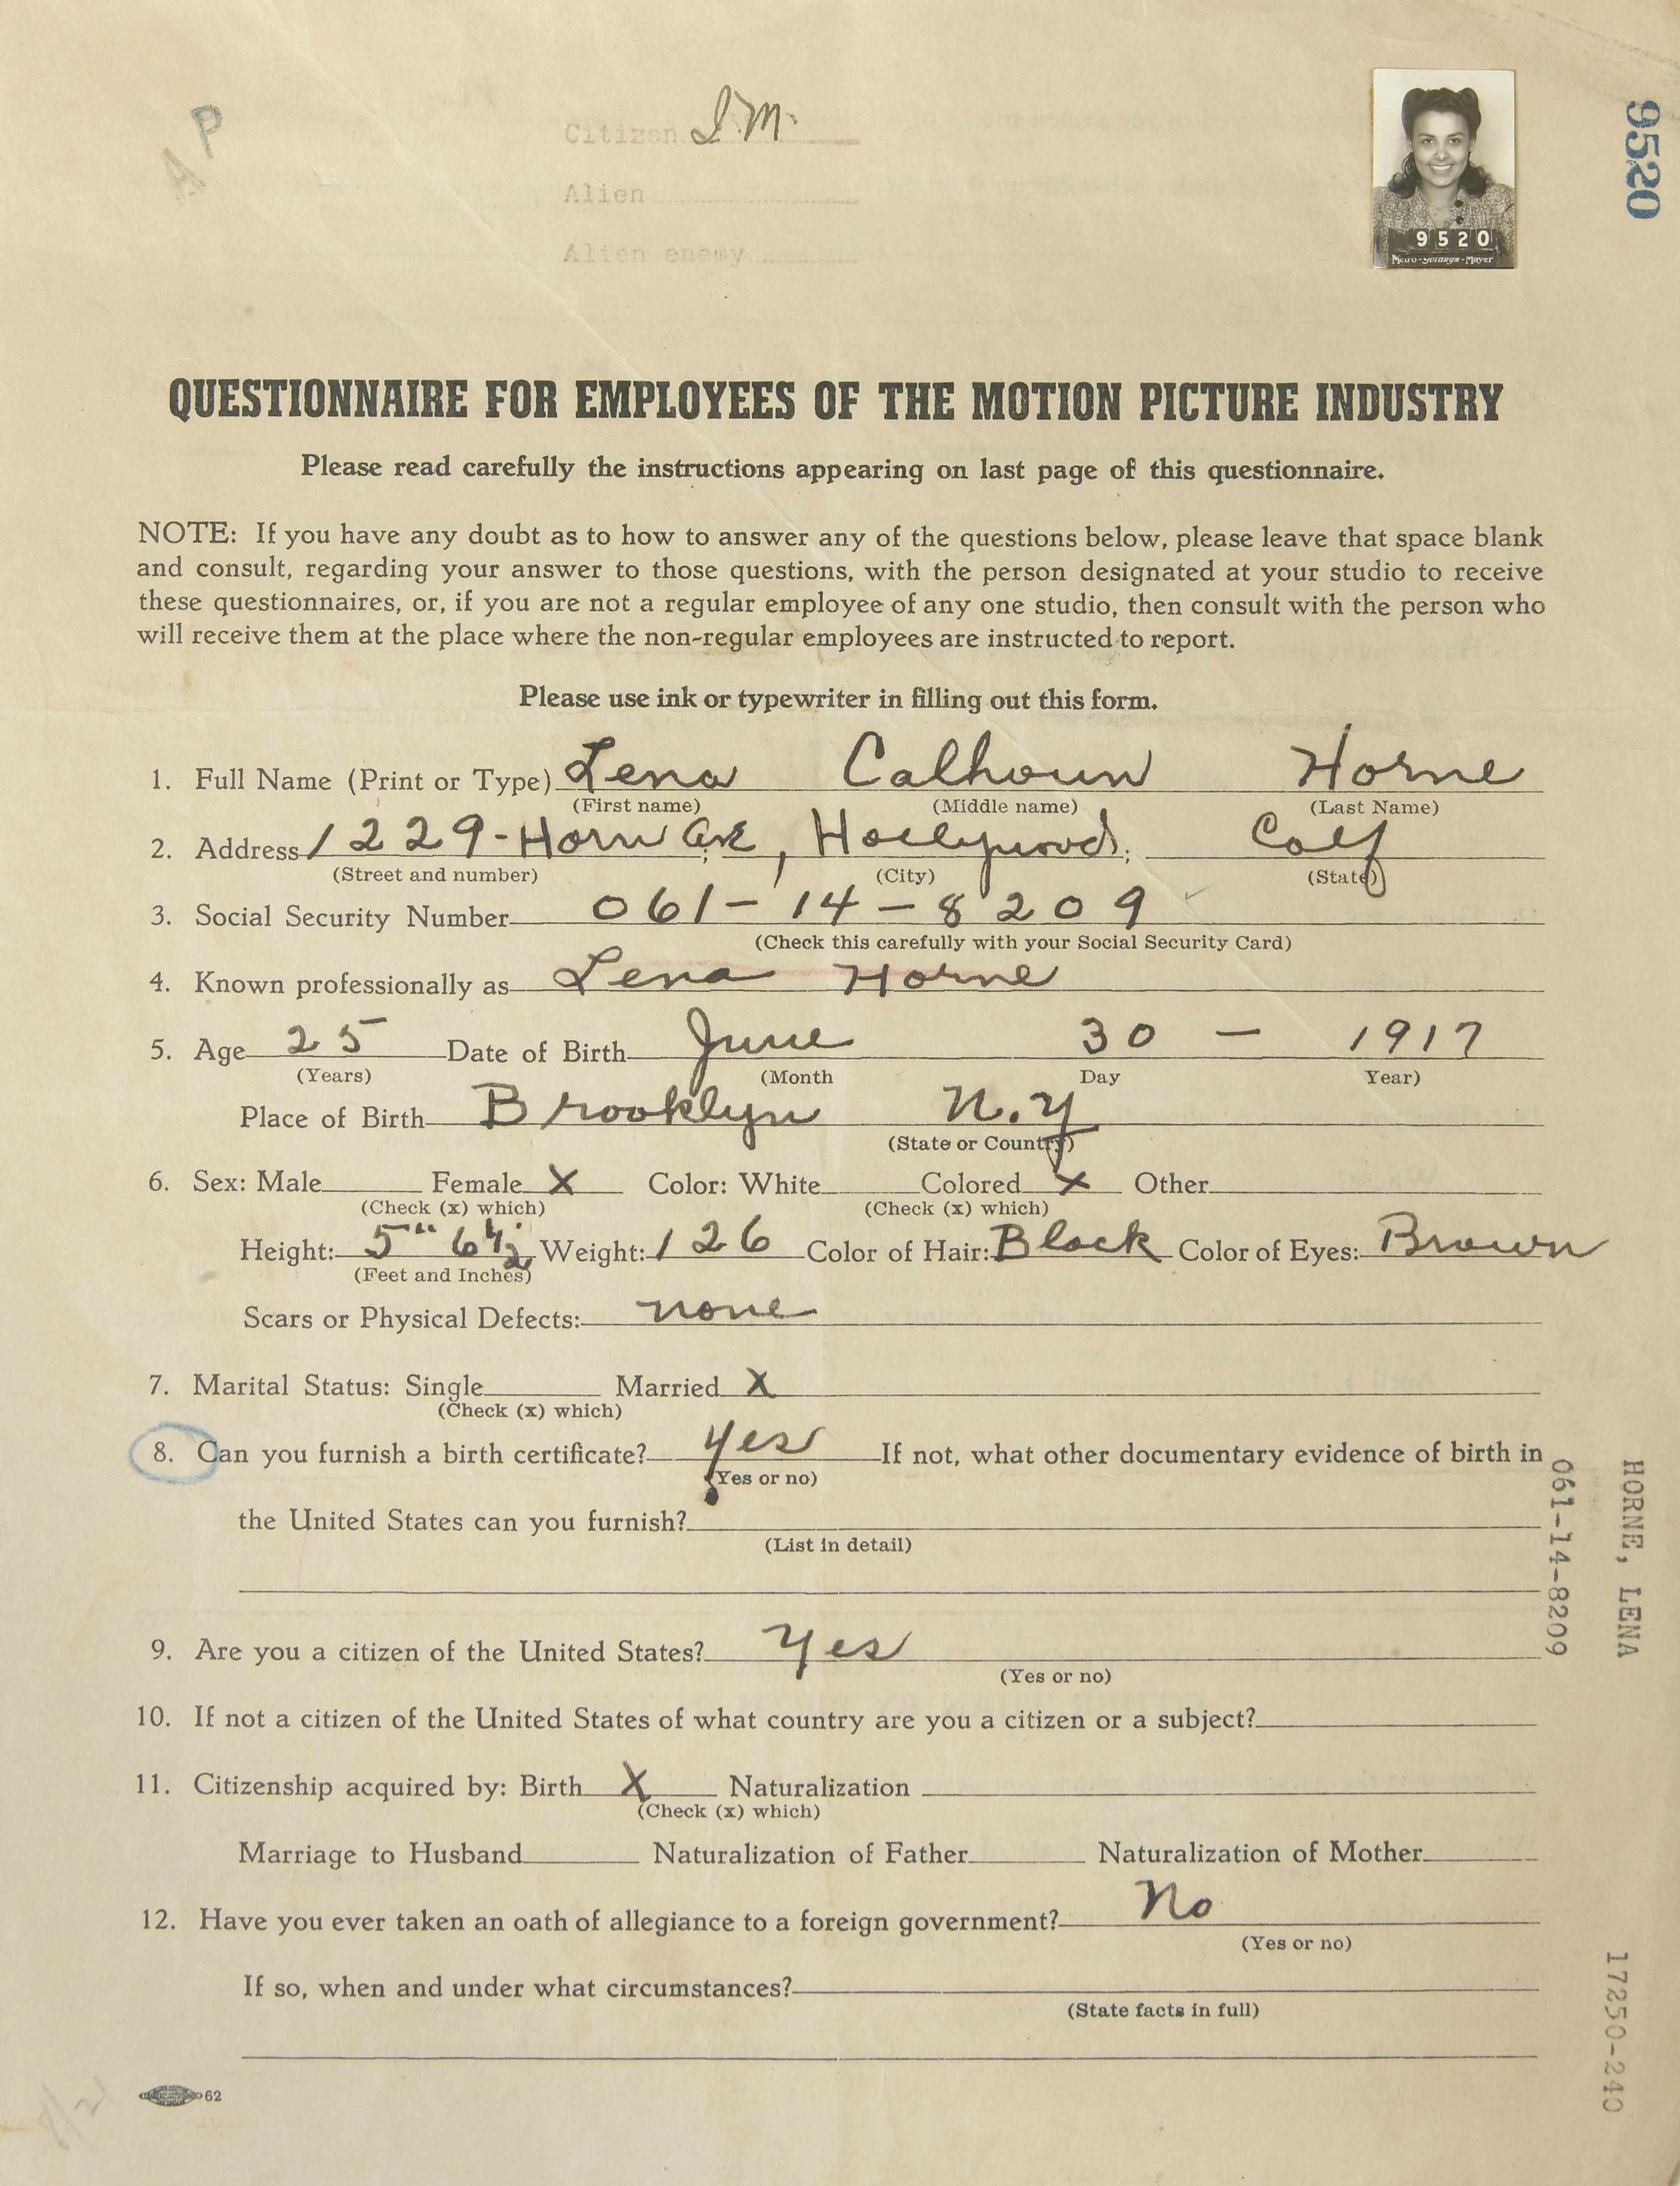 A P
Citizen J.M.
Alien
Alien enemy
9520
Metro-Goldwyn-Mayer
9520
QUESTIONNAIRE FOR EMPLOYEES OF THE MOTION PICTURE INDUSTRY
Please read carefully the instructions appearing on last page of this questionnaire.
NOTE: If you have any doubt as to how to answer any of the questions below, please leave that space blank
and consult, regarding your answer to those questions, with the person designated at your studio to receive
these questionnaires, or, if you are not a regular employee of any one studio, then consult with the person who
will receive them at the place where the non-regular employees are instructed to report.
Please use ink or typewriter in filling out this form.
1. Full Name (Print or Type) Lena Calhoun Horne
(First name) (Middle name) (Last Name)
2. Address 1229-Horn Ave, Hollywood, Calf
(Street and number) (City) (State)
3. Social Security Number 061-14-8209
(Check this carefully with your Social Security Card)
4. Known professionally as Lena Horne
5. Age 25 Date of Birth June 30 - 1917
(Years) (Month Day Year)
Place of Birth Brooklyn N.Y
(State or Country)
6. Sex: Male Female X Color: White Colored X Other
(Check (x) which) (Check (x) which)
Height: 5" 6 1/2 Weight: 126 Color of Hair: Black Color of Eyes: Brown
(Feet and Inches)
Scars or Physical Defects: none
7. Marital Status: Single Married X
(Check (x) which)
8. Can you furnish a birth certificate? yes If not, what other documentary evidence of birth in
(Yes or no)
the United States can you furnish?
(List in detail)
9. Are you a citizen of the United States? Yes
(Yes or no)
10. If not a citizen of the United States of what country are you a citizen or a subject?
11. Citizenship acquired by: Birth X Naturalization
(Check (x) which)
Marriage to Husband Naturalization of Father Naturalization of Mother
12. Have you ever taken an oath of allegiance to a foreign government? No
(Yes or no)
If so, when and under what circumstances?
(State facts in full)
62
HORNE, LENA
061-14-8209
17250-240